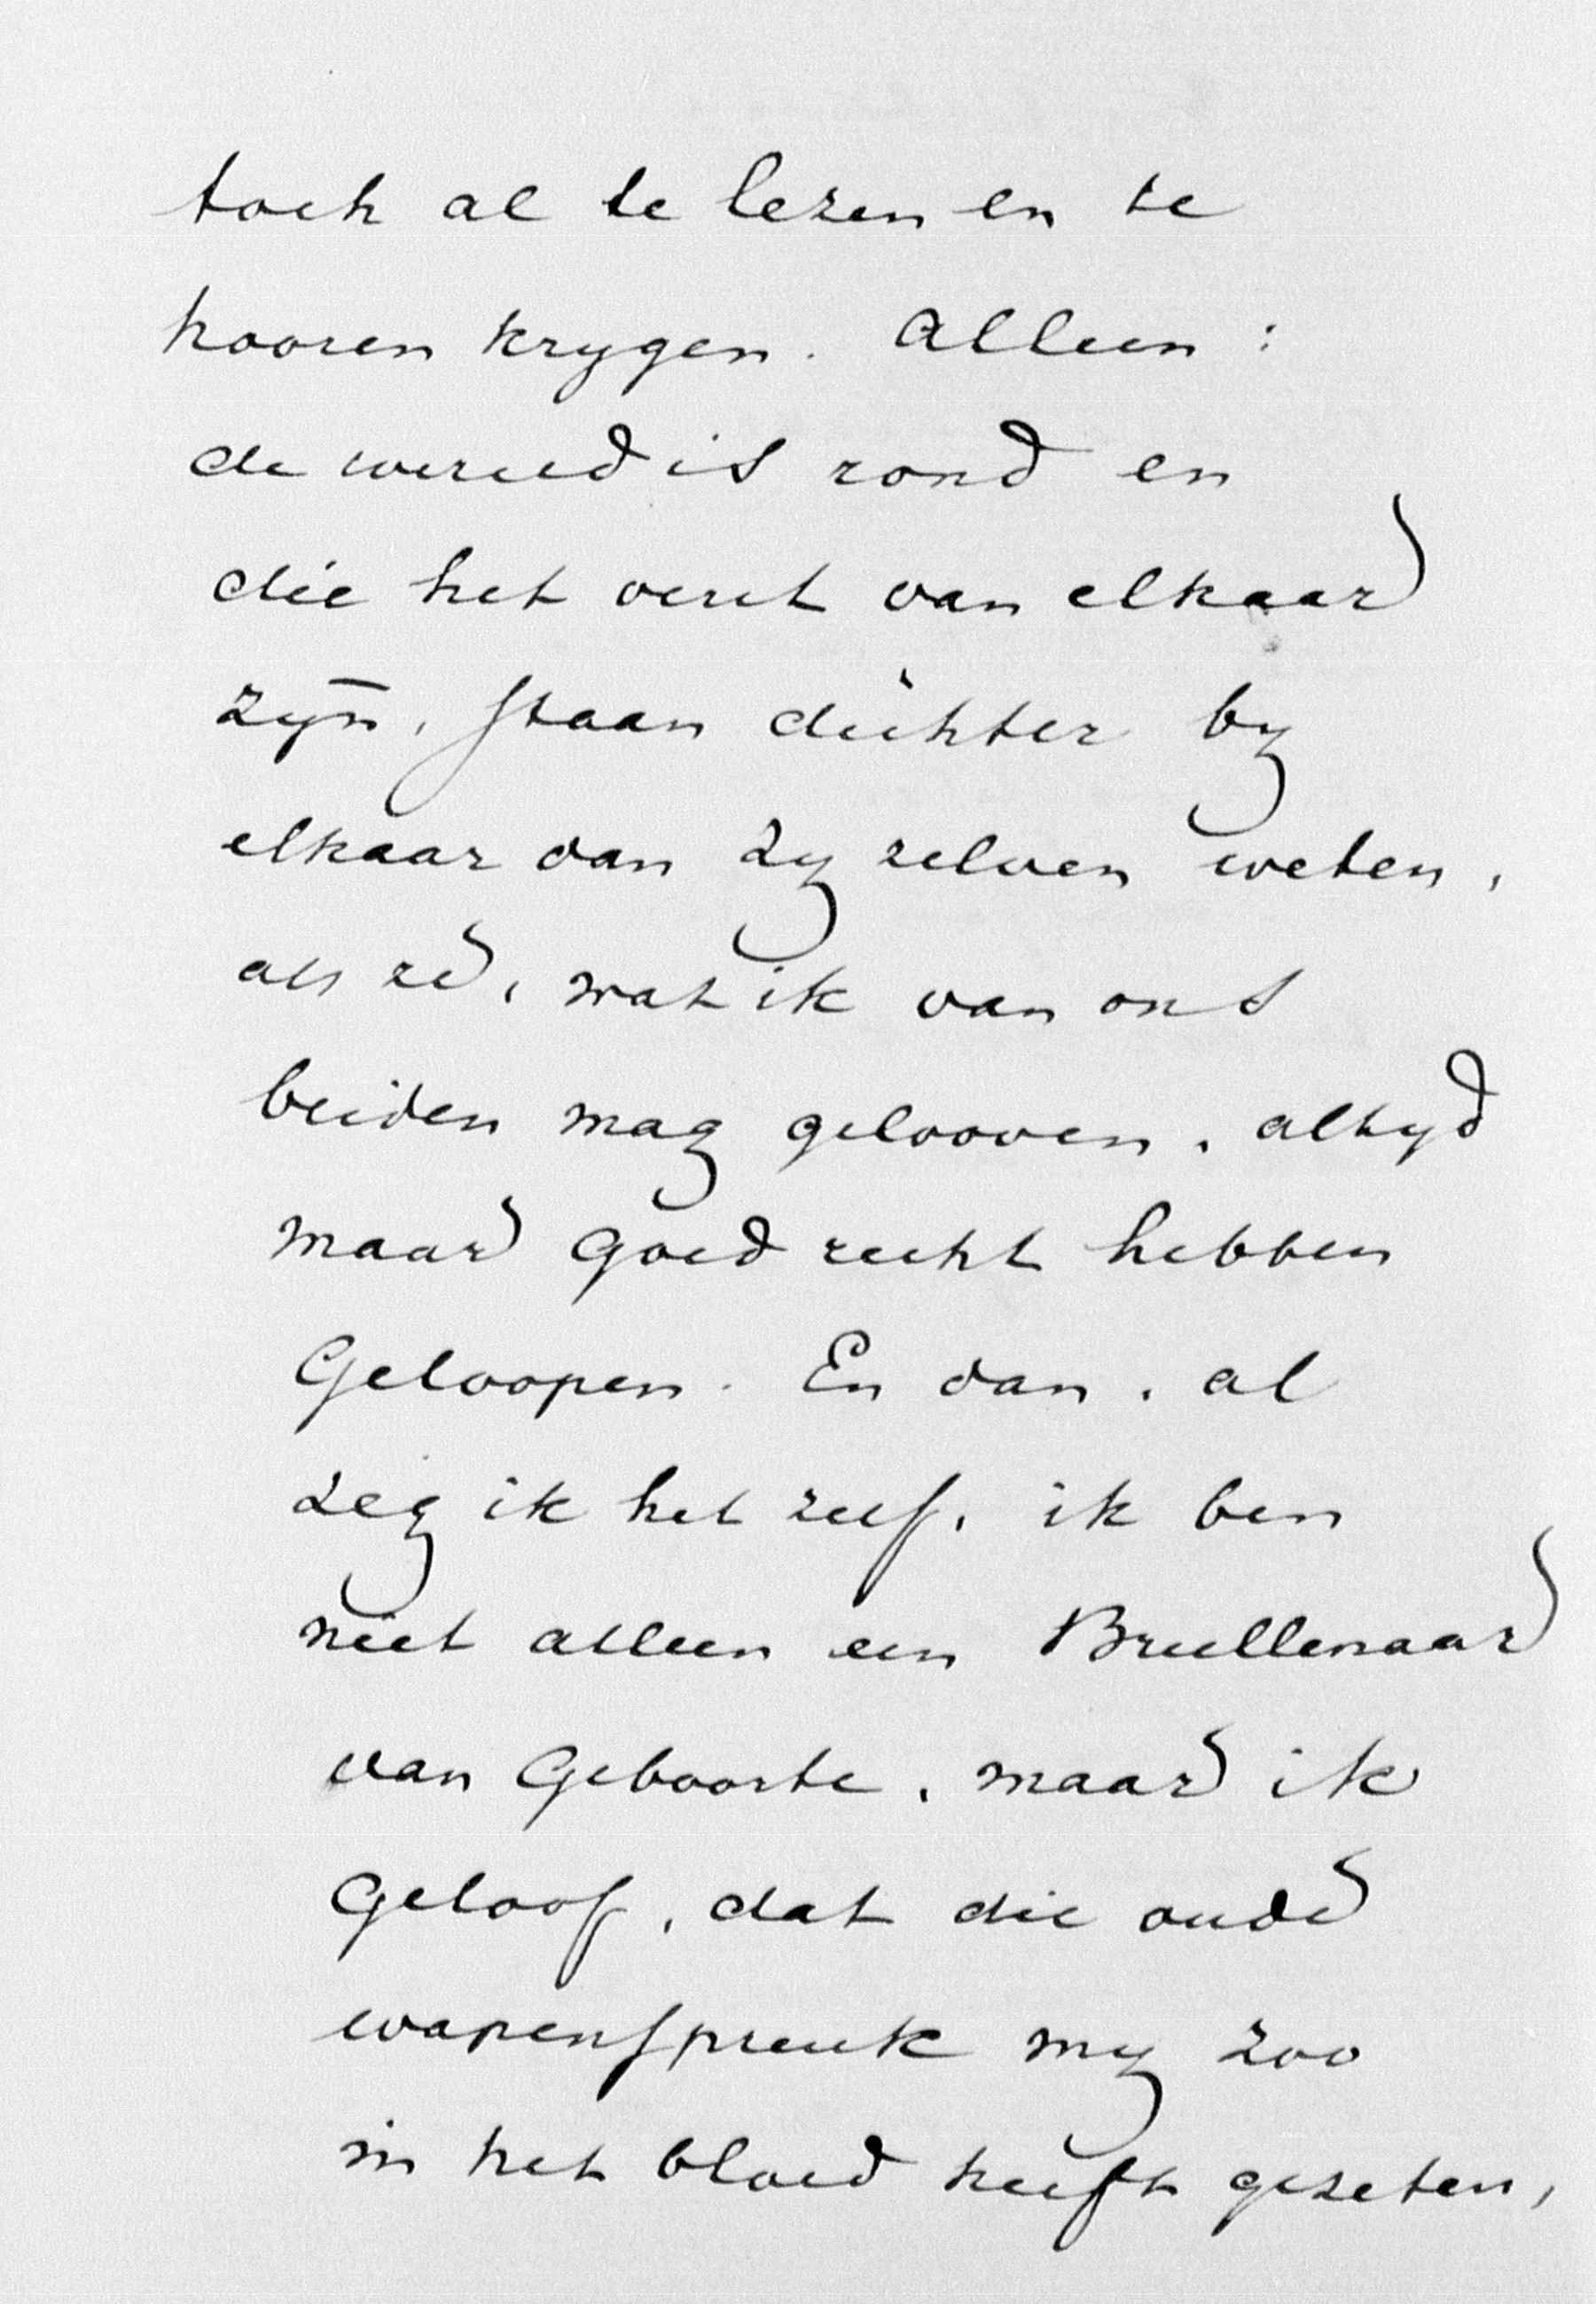 toch al te lezen en te
hooren krygen. Alleen:
de wereld is rond en
die het verst van elkaar
zyn, staan dichter by
elkaar dan zy zelven weten,
als ze, wat ik van ons
beiden mag gelooven, altyd
maar goed recht hebben
geloopen. En dan, al
zeg ik het zelf, ik ben
niet alleen een Briellenaar
van geboorte, maar ik
geloof, dat die oude
wapenspreuk my zoo
in het bloed heeft gezeten,